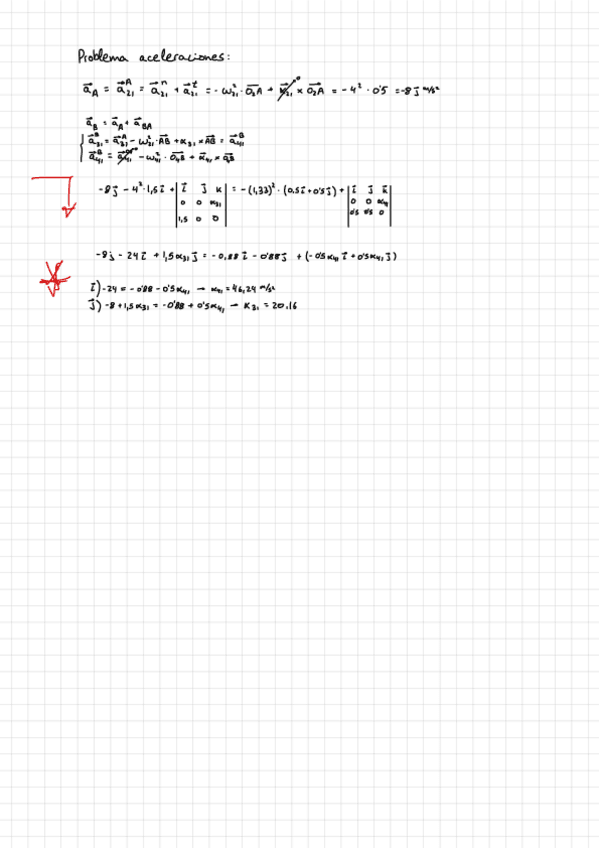 Problema aceleraciones:
a⃗_A = a⃗_21^A = a⃗_21^n + a⃗_21^t = -ω_21² · O₂A + α⃗_21 × O₂A = -4² · 0'5 = -8 j⃗ m/s²
a⃗_B = a⃗_A + a⃗_BA
a⃗_31^B = a⃗_31^A - ω_31² · AB + α_31 × AB = a⃗_41^B
a⃗_41^B = a⃗_41^O4 - ω_41² · O₄B + α⃗_41 × O₄B
-8j⃗ - 4² · 1,5 i⃗ + | i⃗ j⃗ k | = -(1,33)² · (0,5i⃗ + 0'5j⃗) + | i⃗ j⃗ k⃗ |
0 0 α_31 0 0 α_41
1,5 0 0 0'5 0'5 0
-8j⃗ - 24 i⃗ + 1,5α_31 j⃗ = -0,88 i⃗ - 0'88j⃗ + (-0'5α_41 i⃗ + 0'5α_41 j⃗)
i⃗) -24 = -0'88 - 0'5α_41 → α_41 = 46,24 m/s²
j⃗) -8 + 1,5α_31 = -0'88 + 0'5α_41 → α_31 = 20.16